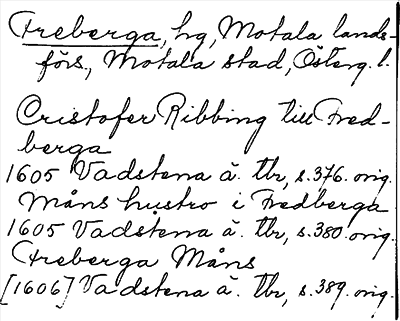 Freberga, hg, Motala lands-
förs., Motala stad, Österg. l.
Cristofer Ribbing till Fred-
berga
1605 Vadstena ä. tbr, s. 376. orig.
Måns hustro i Fredberga
1605 Vadstena ä. tbr, s. 380. orig.
Freberga Måns
[1606] Vadstena ä. tbr, s. 389. orig.